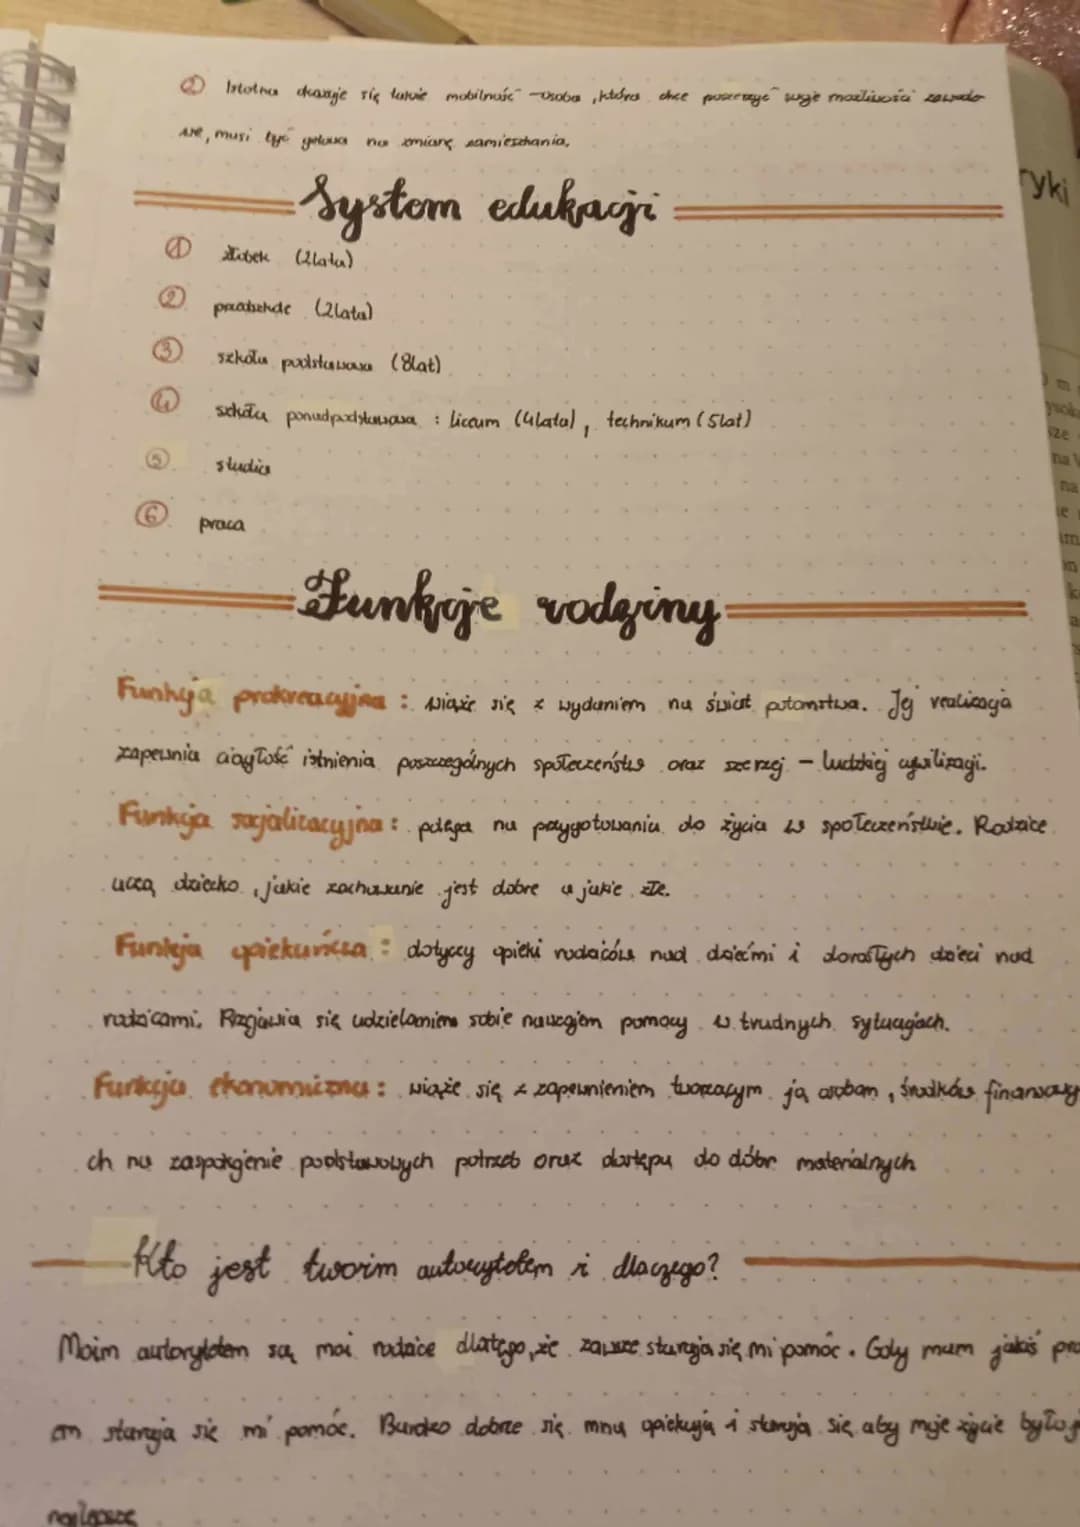 ② Istotna okazuje się także mobilność - osoba, która chce poszerzyć swoje możliwości zawodo
we, musi być gotowa na zmianę zamieszkania.
ryki
System edukacji
① żłobek (2lata)
② przedszkole (2lata)
③ szkoła podstawowa (8lat)
④ szkoła ponadpodstawowa : liceum (4lata), technikum (5lat)
⑤ studia
⑥ praca
Funkcje rodziny
Funkcja prokreacyjna : wiąże się z wydaniem na świat potomstwa. Jej realizacja
zapewnia ciągłość istnienia poszczególnych społeczeństw oraz szerzej - ludzkiej cywilizacji.
Funkcja socjalizacyjna : polega na przygotowaniu do życia w społeczeństwie. Rodzice
uczą dziecko, jakie zachowanie jest dobre a jakie złe.
Funkcja opiekuńcza : dotyczy opieki rodziców nad dziećmi i dorosłych dzieci nad
rodzicami. Przejawia się udzielaniem sobie nawzajem pomocy w trudnych sytuacjach.
Funkcja ekonomiczna : wiąże się z zapewnieniem tworzącym ją osobom, środków finansowy
ch na zaspokojenie podstawowych potrzeb oraz dostępu do dóbr materialnych
Kto jest twoim autorytetem i dlaczego?
Moim autorytetem są moi rodzice dlatego, że zawsze starają się mi pomóc. Gdy mam jakiś pro
em starają się mi pomóc. Bardzo dobrze się mną opiekują i starają się aby moje życie było j
najlepsze